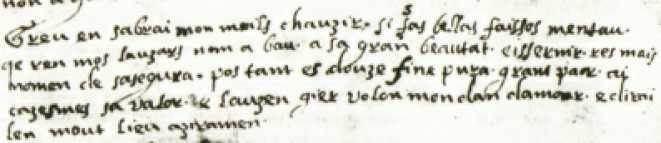 Greu en sabrai mon meils chauzir. si sas bellas faissos mentau.
qe ren mos lauzars non a bau. a sa gran beautat. eissernir. res mais
nomen de sasegura. pos tant es douze fine pura. grant paor. ai
cazesmes sa valor. e lauzen qier volon mon dan clamor. e dirai
len mout lieu azramen.